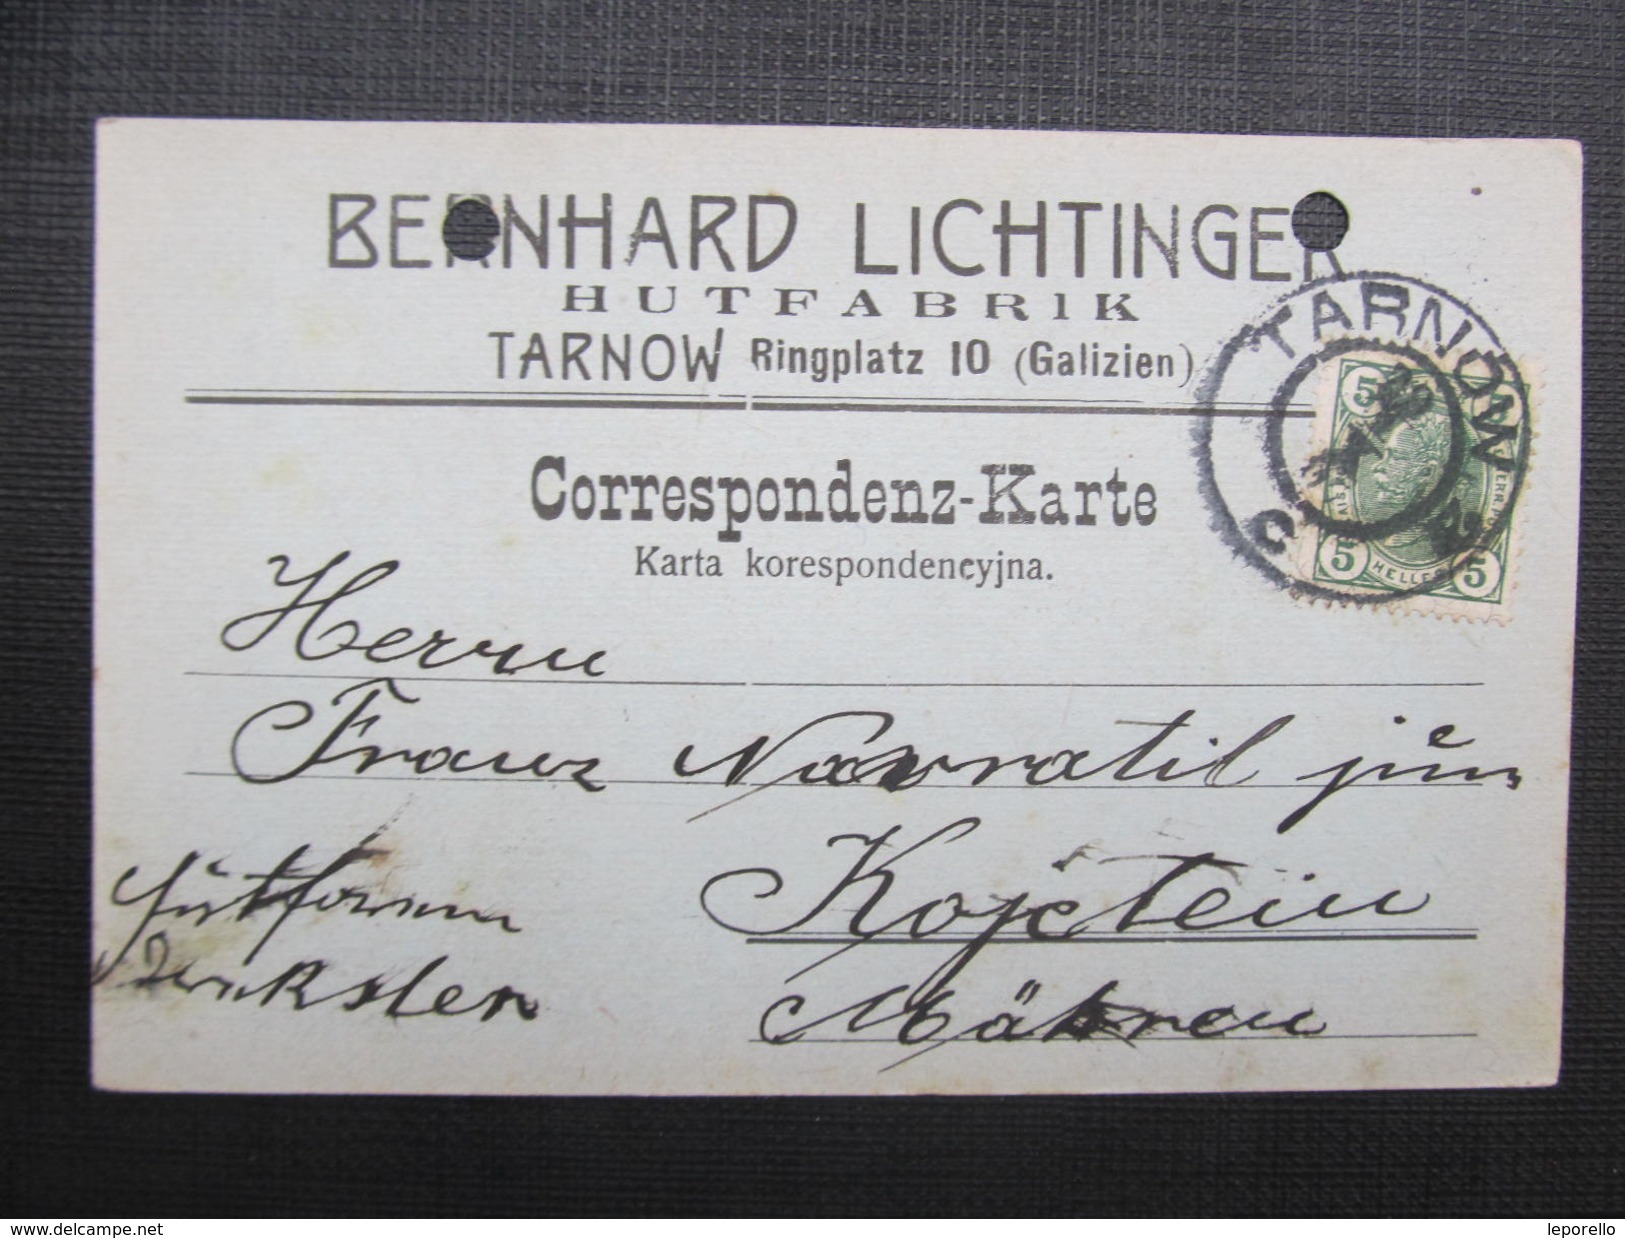 BERNHARD LICHTINGER
HUTFABRIK
TARNOW Ringplatz 10 (Galizien)
TARNOW
5 5
5 HELLER 5
C 2
Correspondenz-Karte
Karta korespondencyjna.
Herrn
Franz Navratil jun
Kojetein
Mähren
www.delcampe.net
leporello